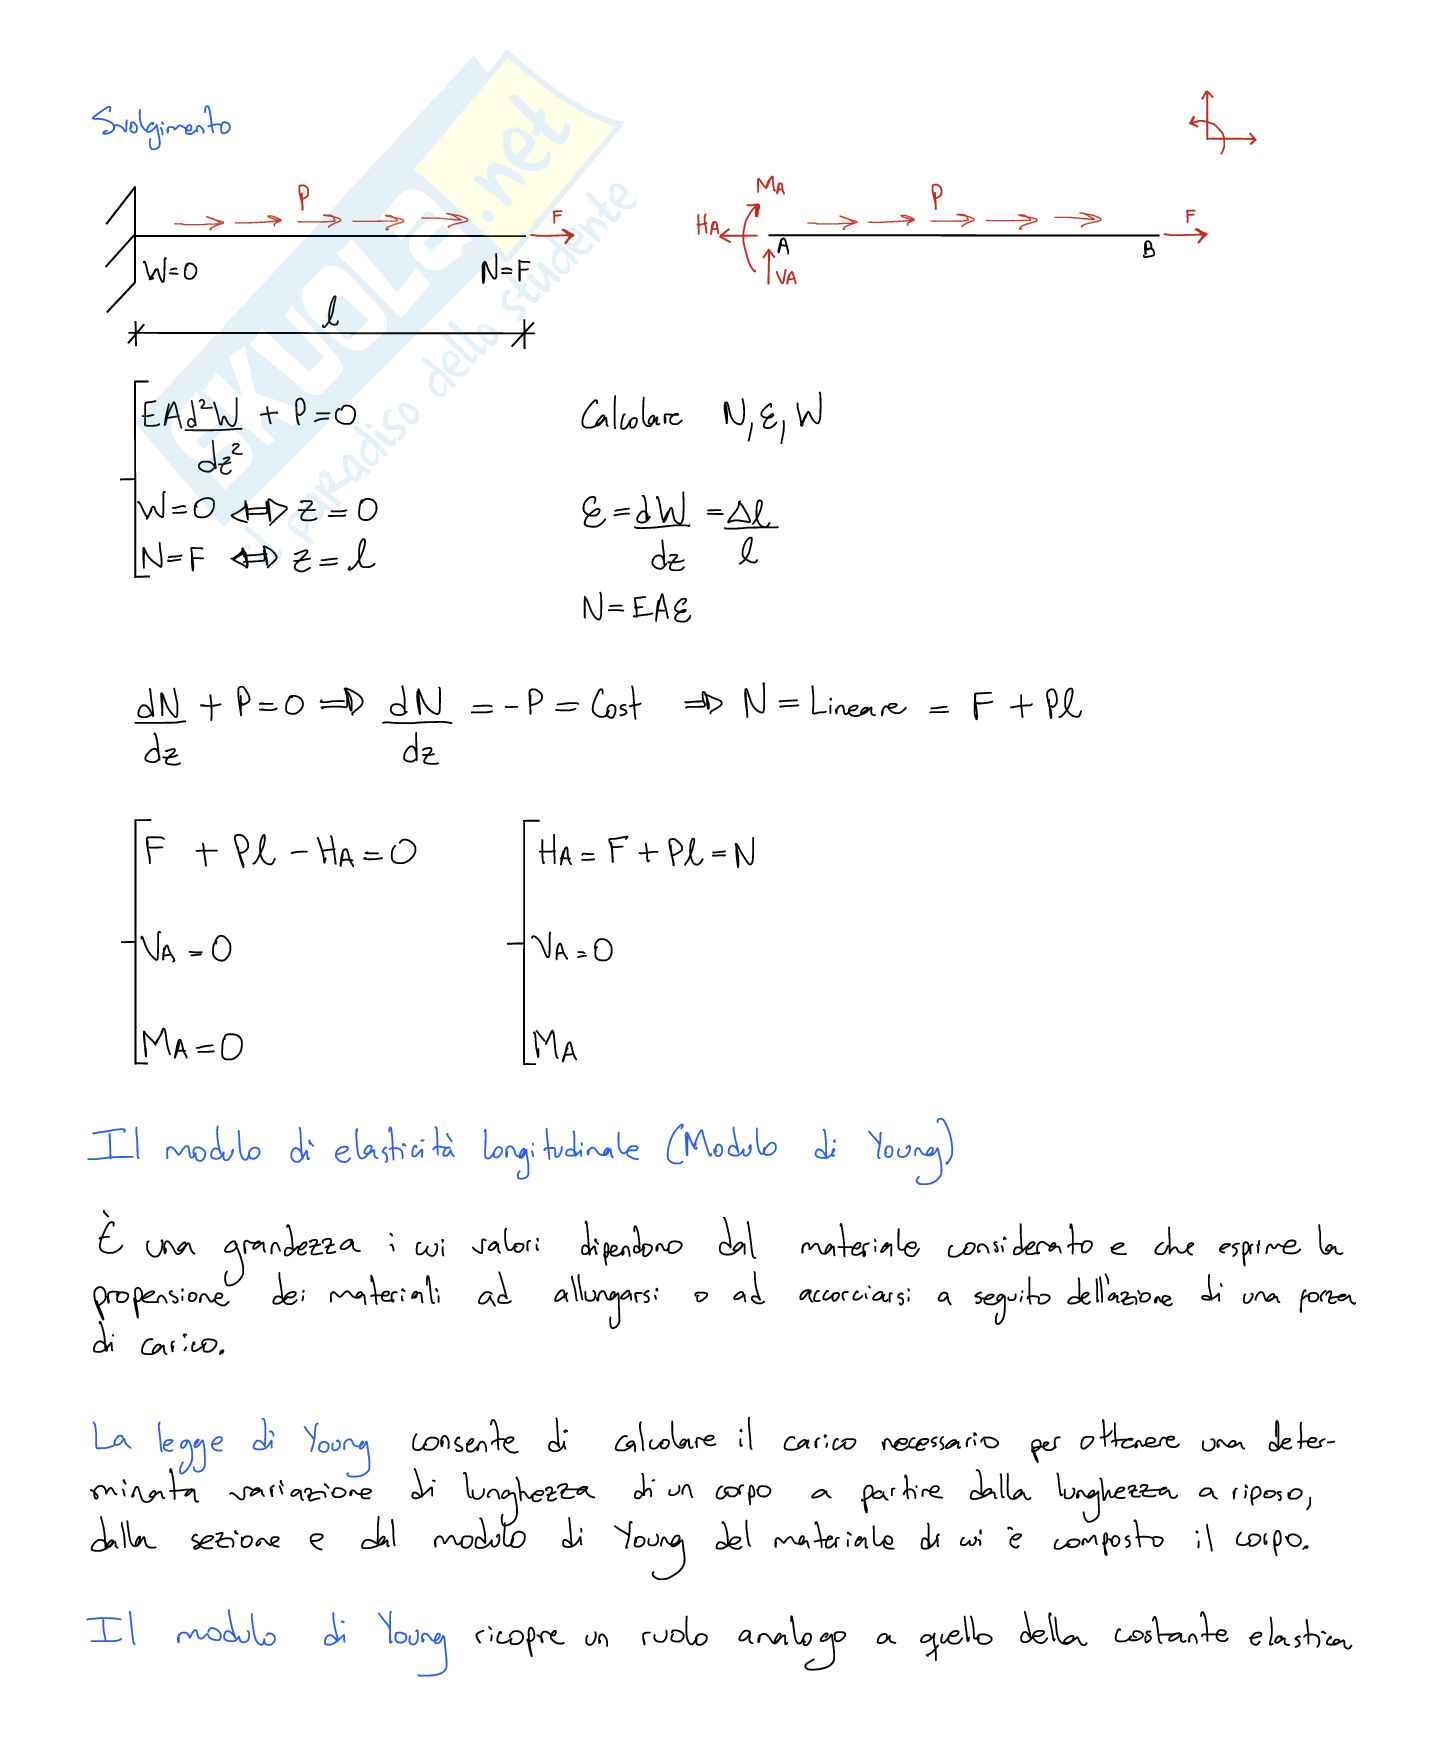 Svolgimento
P
F
W=0
N=F
l
MA
HA
VA
A
P
B
F
EA d²W/dz² + P=0
W=0 ⇔ z=0
N=F ⇔ z=l
Calcolare N, ε, W
ε = dW/dz = Δl/l
N=EAε
dN/dz + P=0 ⇒ dN/dz = -P = Cost ⇒ N = Lineare = F + Pl
F + Pl - HA = 0
VA = 0
MA = 0
HA = F + Pl = N
VA = 0
MA
Il modulo di elasticità longitudinale (Modulo di Young)
È una grandezza i cui valori dipendono dal materiale considerato e che esprime la
propensione dei materiali ad allungarsi o ad accorciarsi a seguito dell'azione di una forza
di carico.
La legge di Young consente di calcolare il carico necessario per ottenere una deter-
minata variazione di lunghezza di un corpo a partire dalla lunghezza a riposo,
dalla sezione e dal modulo di Young del materiale di cui è composto il corpo.
Il modulo di Young ricopre un ruolo analogo a quello della costante elastica
SKUOLA.net
il paradiso dello studente